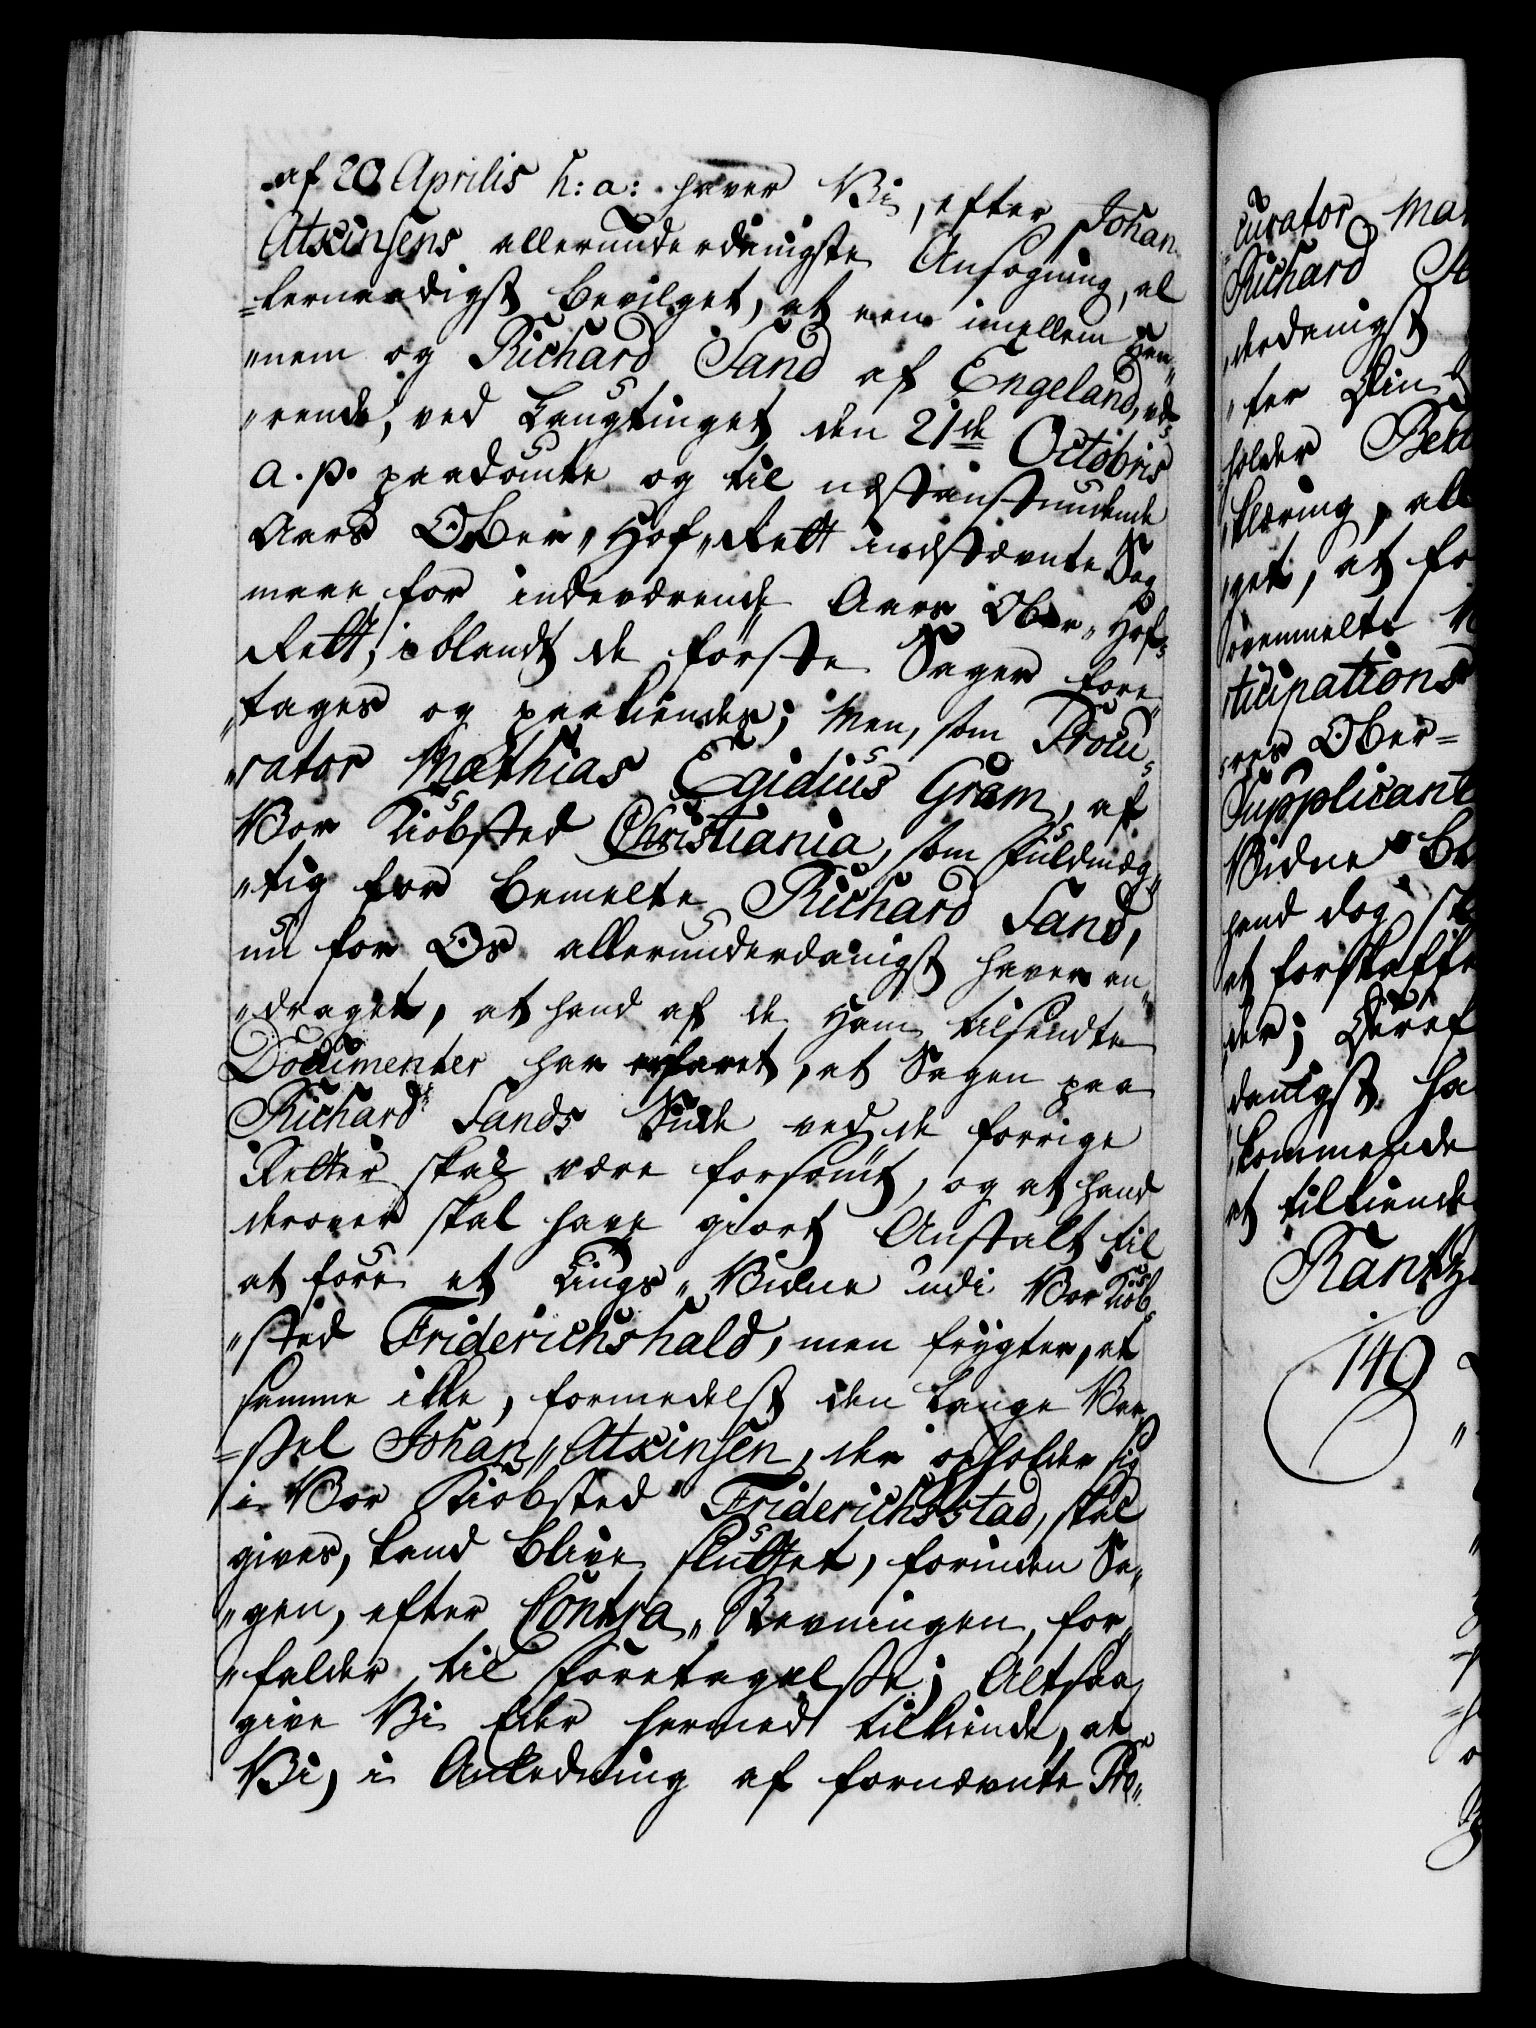 af 20 Aprilis h: a: haver Vi, efter Johan
Atkinsens allerunderdanigste Ansøgning, al
=lernaadigst bevilget, at een imellem han„
„nem og Richard Sand af Engeland, væ
„rende, ved Laugtinget den 21de Octobris
a. p. paadømte og til næstanstundende
Aars Ober„Hof„Rett indstævnte Sag
maae for indeværende Aars Ober„Hof„
Rett, iblandt de første Sager fore„
„tages og paakiendes; Men, som Procu„
„rator Mathias Egidius Gram, af
Vor Kiøbsted Christiania, som Fuldmæg„
„tig for bemelte Richard Sand,
nu for Os allerunderdanigst haver an„
„draget, at hand af de ham tilsendte
Documenter har erfaret, at Sagen paa
Richard Sands Siide ved de forrige
Retter skal være forsømt, og at hand
derover skal have giort Anstalt til
at føre et Tings„Vidne udi Vor Kiøb„
„sted Friderichshald, men frygter, at
samme ikke, formedelst den lange Var„
=sel Johan„Atkinsen, der opholder sig
i Vor Kiøbsted Friderichsstad, skal
gives, kand blive sluttet, forinden Sa„
„gen, efter Contra„Stevningen, for„
„falder til Foretagelse; Altsaa
give Vi Eder hermed tilkiende, at
Vi, i Anledning af fornævnte Pro„
curator Mat
Richard
derdanigst
„ter Din
holder
klæring, all
get, at fo
ovenmelte
ticipations
res Ober=
Supplicant
Vidne bl
hand dog
at forskaffe
der; Deref
danigst ha
kommende
at tilkiende
Rantz
149